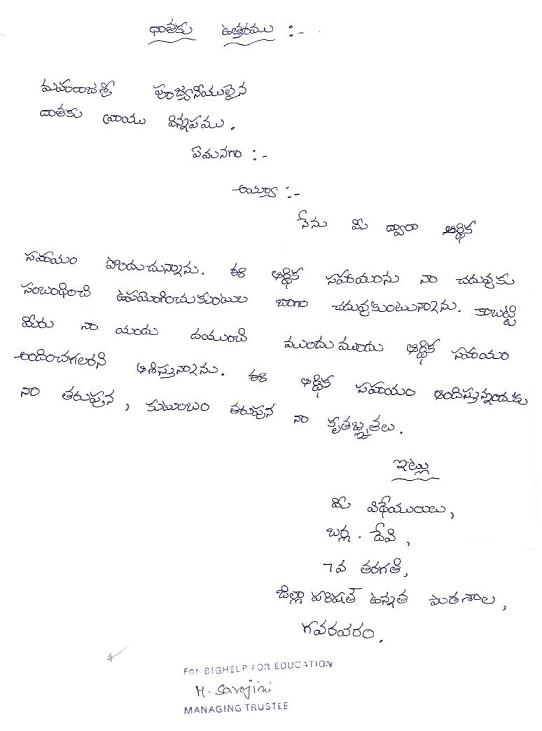 దాతకు ఉత్తరము :-
మహారాజశ్రీ పూజ్యనీయులైన
దాతకు వ్రాయు విన్నపము.
ఏమనగా :-
అయ్యా :-
నేను మీ ద్వారా ఆర్థిక
సహాయం పొందుచున్నాను. ఈ ఆర్థిక సహాయంను నా చదువుకు
సంబంధించి ఉపయోగించుకుంటు బాగా చదువుకుంటున్నాను. కాబట్టి
మీరు నా యందు దయుంచి ముందు ముందు ఆర్థిక సహాయం
అందించగలరని ఆశిస్తున్నాను. ఈ ఆర్థిక సహాయం అందిస్తున్నందుకు
నా తరుపున, కుటుంబం తరుపున నా కృతజ్ఞతలు.
ఇట్లు
మీ విధేయురాలు,
బర్ల. దేవి,
7వ తరగతి,
జిల్లా పరిషత్ ఉన్నత పాఠశాల,
గవరవరం.
For BIGHELP FOR EDUCATION
M. Sarojini
MANAGING TRUSTEE